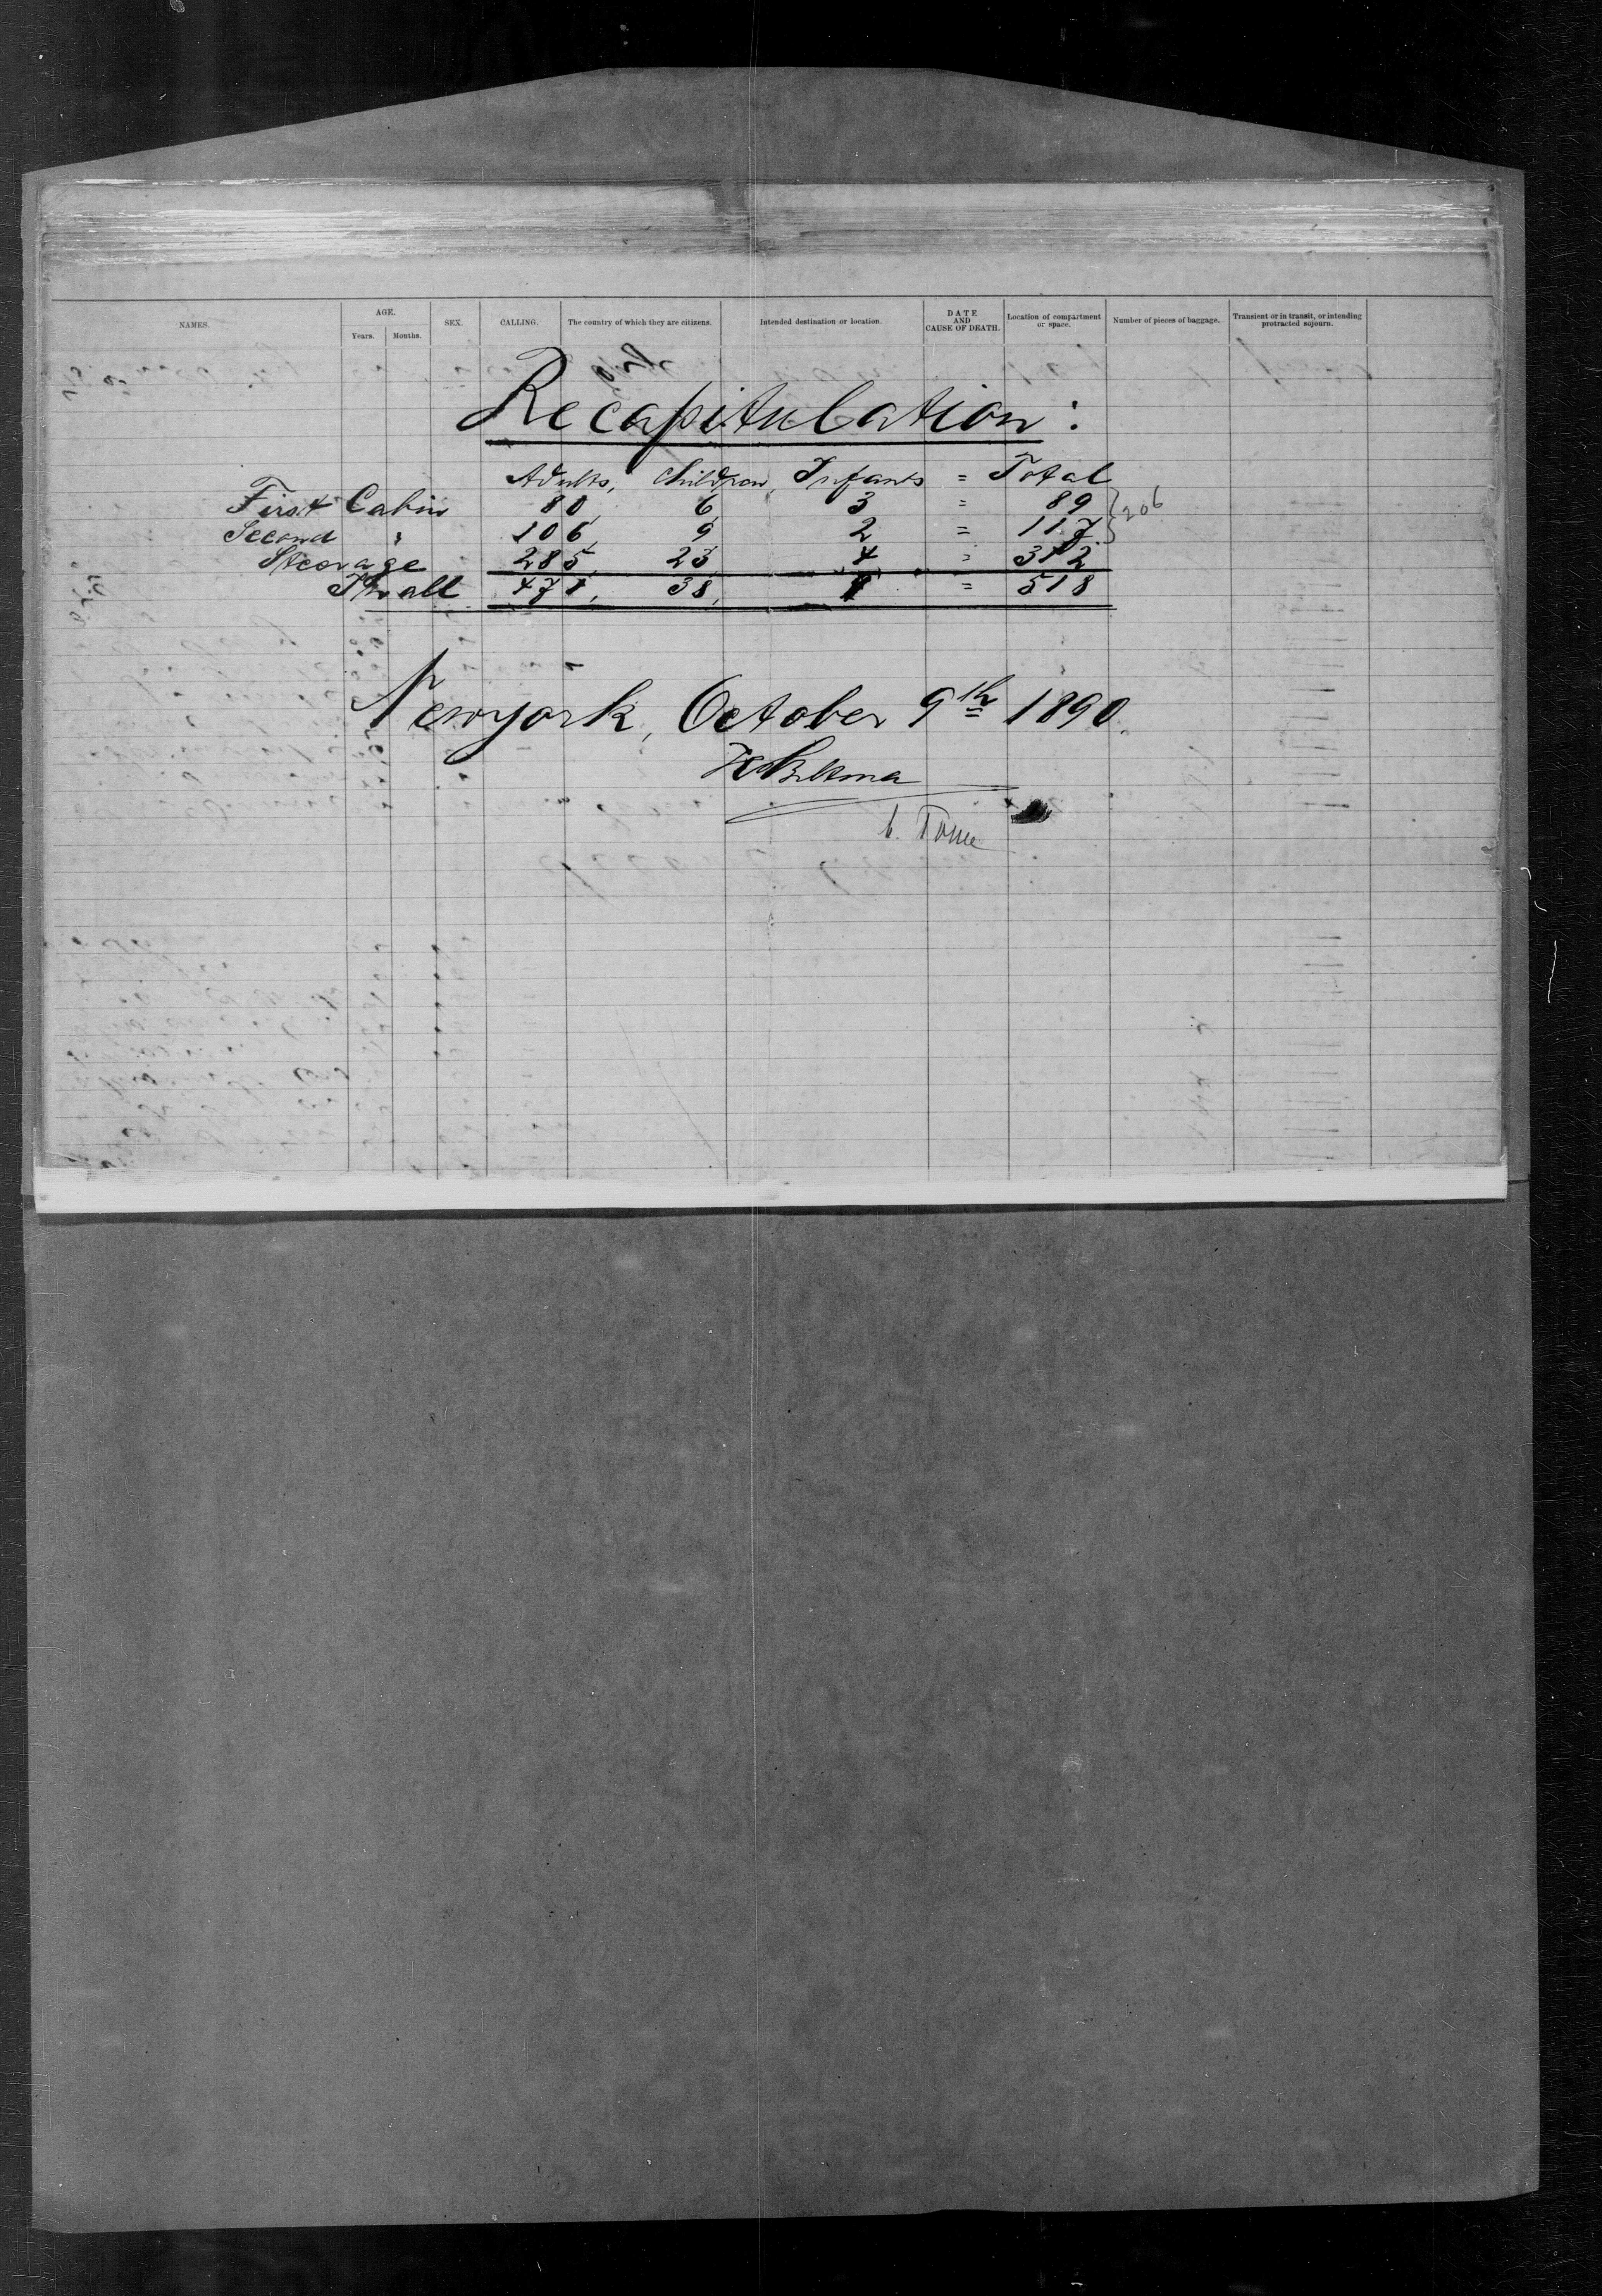 NAMES. AGE. SEX. CALLING. The country of which they are citizens. Intended destination or location. DATE AND CAUSE OF DEATH. Location of compartment or space. Number of pieces of baggage. Transient or in transit, or intending protracted sojourn.
Years. Months.
Recapitulation:
Adults, Children, Infants = Total
First Cabin 80, 6, 3 = 89 } 206
Second " 106, 9, 2 = 117
Steerage 285, 23, 4 = 312
In all 471, 38, 9 = 518
Newyork, October 9th 1890.